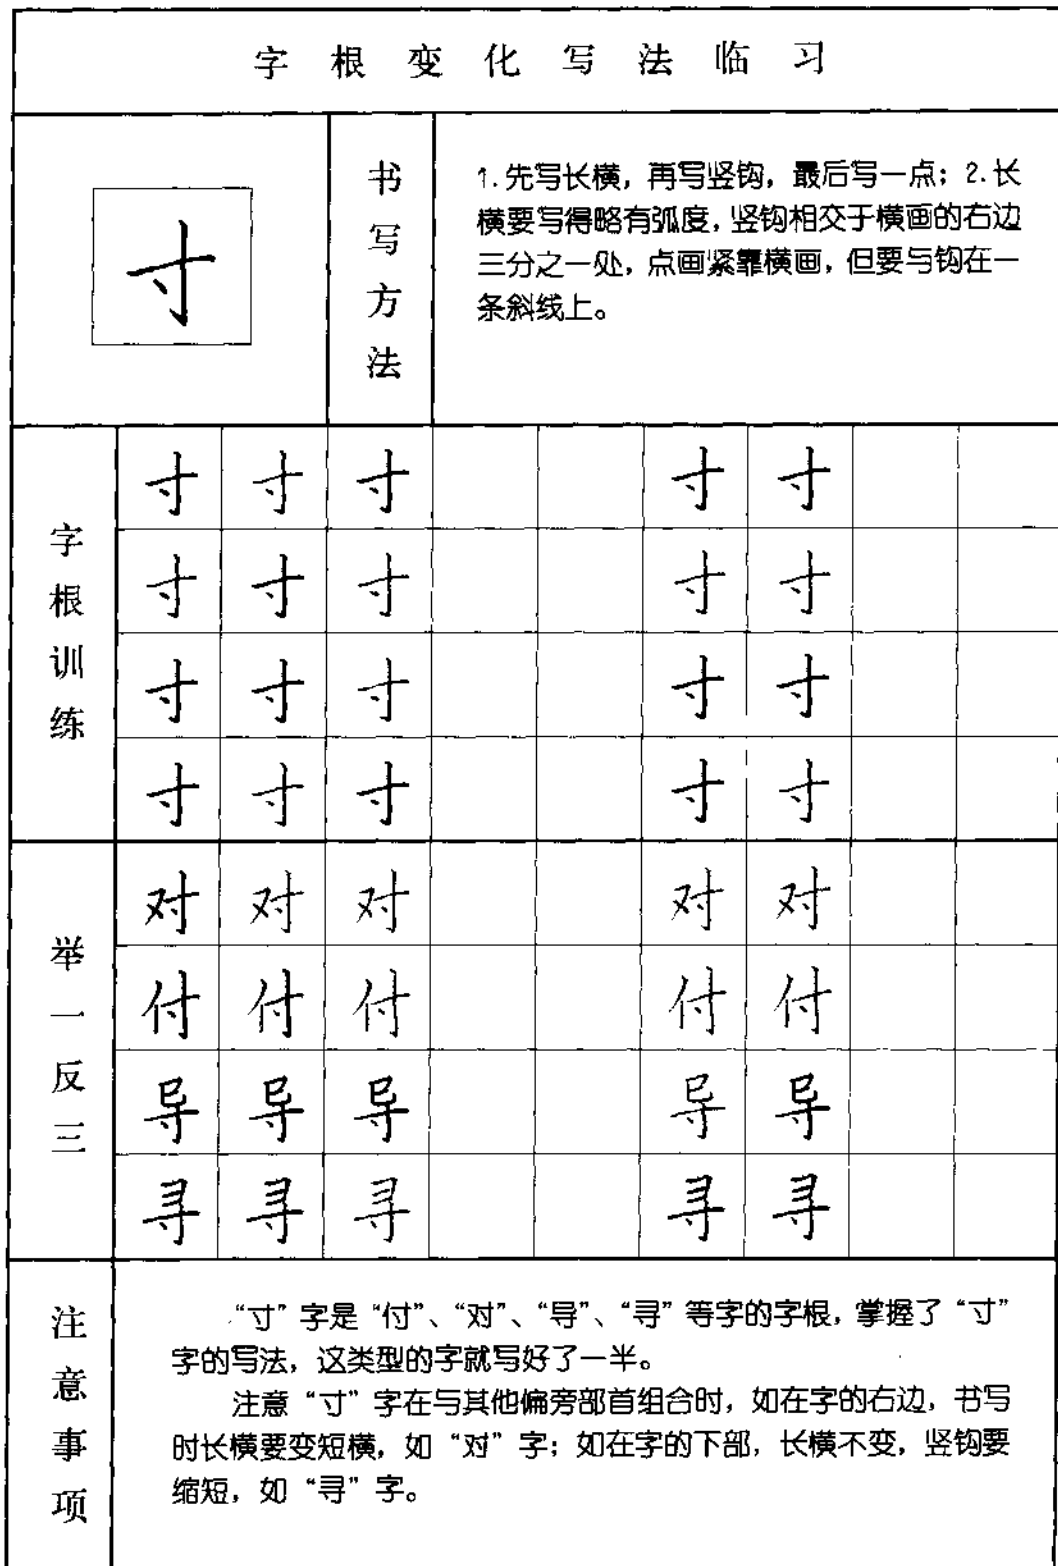 字根变化写法临习
寸
书写方法
1.先写长横，再写竖钩，最后写一点；2.长
横要写得略有弧度，竖钩相交于横画的右边
三分之一处，点画紧靠横画，但要与钩在一
条斜线上。
字根训练
寸 寸 寸 寸 寸
寸 寸 寸 寸 寸
寸 寸 寸 寸 寸
寸 寸 寸 寸 寸
举一反三
对 对 对 对 对
付 付 付 付 付
导 导 导 导 导
寻 寻 寻 寻 寻
注意事项
“寸”字是“付”、“对”、“导”、“寻”等字的字根，掌握了“寸”
字的写法，这类型的字就写好了一半。
注意“寸”字在与其他偏旁部首组合时，如在字的右边，书写
时长横要变短横，如“对”字；如在字的下部，长横不变，竖钩要
缩短，如“寻”字。